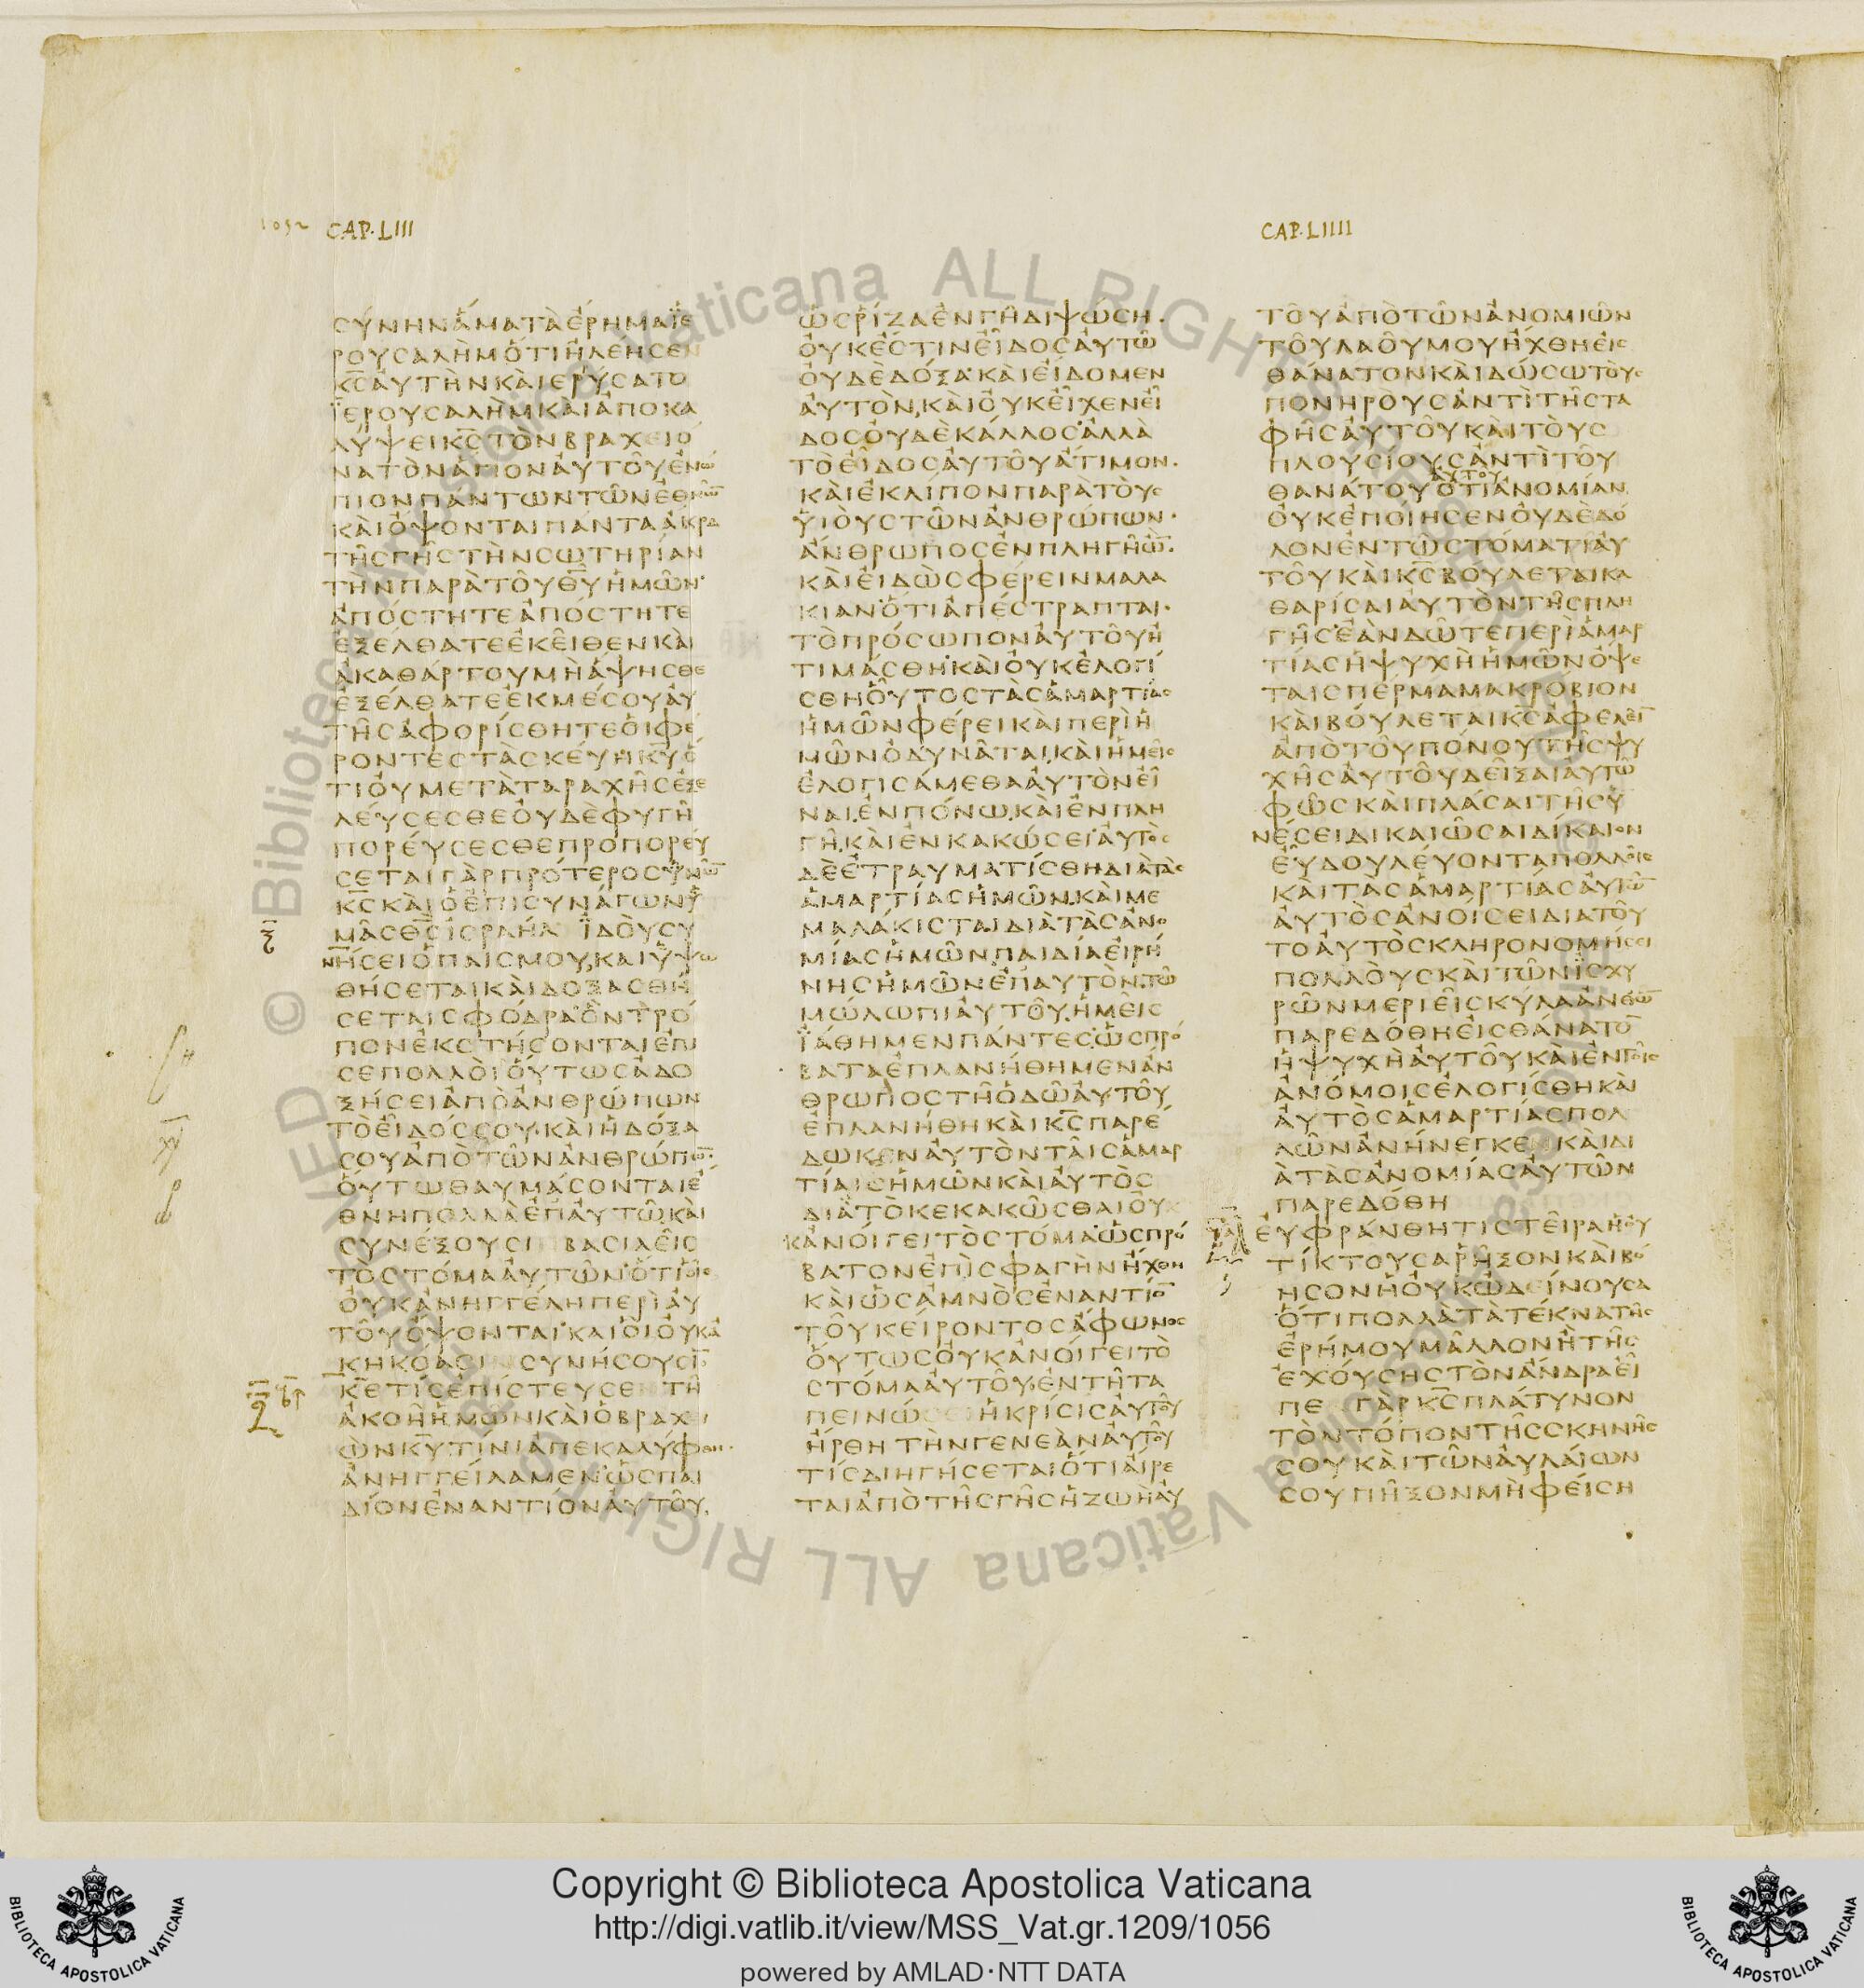 1052 CAP. LIII
ϹΥΝΗΝΑΜΑΤΑΕΡΗΜΑΪΕ
ΡΟΥϹΑΛΗΜΟΤΙΗΛΕΗϹΕΝ
ΚϹΑΥΤΗΝΚΑΙΕΡΥϹΑΤΟ
ΪΕΡΟΥϹΑΛΗΜΚΑΙΑΠΟΚΑ
ΛΥΨΕΙΚϹΤΟΝΒΡΑΧΕΙΟ
ΝΑΤΟΝΑΓΙΟΝΑΥΤΟΥΕΝΩ
ΠΙΟΝΠΑΝΤΩΝΤΩΝΕΘΝΩ̅
ΚΑΙΟΨΟΝΤΑΙΠΑΝΤΑΑΚΡΑ
ΤΗϹΓΗϹΤΗΝϹΩΤΗΡΙΑΝ
ΤΗΝΠΑΡΑΤΟΥΘΥΗΜΩΝ·
ΑΠΟϹΤΗΤΕΑΠΟϹΤΗΤΕ
ΕΞΕΛΘΑΤΕΕΚΕΙΘΕΝΚΑΙ
ΑΚΑΘΑΡΤΟΥΜΗΑΨΗϹΘΕ
ΕΞΕΛΘΑΤΕΕΚΜΕϹΟΥΑΥ
ΤΗϹΑΦΟΡΙϹΘΗΤΕΟΙΦΕ
ΡΟΝΤΕϹΤΑϹΚΕΥΗΚΥΟ
ΤΙΟΥΜΕΤΑΤΑΡΑΧΗϹΕΞΕ
ΛΕΥϹΕϹΘΕΟΥΔΕΦΥΓΗ
ΠΟΡΕΥϹΕϹΘΕΠΡΟΠΟΡΕΥ
ϹΕΤΑΙΓΑΡΠΡΟΤΕΡΟϹΫΜΩ̅
ΚϹΚΑΙΟΕΠΙϹΥΝΑΓΩΝΫ
ΜΑϹΘϹΙϹΡΑΗΛ ΪΔΟΥϹΥ
ΝΗϹΕΙΟΠΑΙϹΜΟΥ,ΚΑΙΫΨΩ
ΘΗϹΕΤΑΙΚΑΙΔΟΞΑϹΘΗ
ϹΕΤΑΙϹΦΟΔΡΑ·ΟΝΤΡΟ
ΠΟΝΕΚϹΤΗϹΟΝΤΑΙΕΠΙ
ϹΕΠΟΛΛΟΙΟΥΤΩϹΑΔΟ
ΞΗϹΕΙΑΠΟΑΝΘΡΩΠΩΝ
ΤΟΕΙΔΟϹϹΟΥ·ΚΑΙΗΔΟΞΑ
ϹΟΥΑΠΟΤΩΝΑΝΘΡΩΠΩ̅·
ΟΥΤΩΘΑΥΜΑϹΟΝΤΑΙΕ
ΘΝΗΠΟΛΛΑΕΠΑΥΤΩ,ΚΑΙ
ϹΥΝΕΞΟΥϹΙ ΒΑϹΙΛΕΙϹ
ΤΟϹΤΟΜΑΑΥΤΩΝ·ΟΤΙΟΙϹ
ΟΥΚΑΝΗΓΓΕΛΗΠΕΡΙΑΥ
ΤΟΥΟΨΟΝΤΑΙ·ΚΑΙΟΙΟΥΚΑ
ΚΗΚΟΑϹΙ ϹΥΝΗϹΟΥϹΙ̅
Κ̅Ε̅ΤΙϹΕΠΙϹΤΕΥϹΕ ΤΗ
ΑΚΟΗΗΜΩΝΚΑΙΟΒΡΑΧΙ
ΩΝΚΥΤΙΝΙΑΠΕΚΑΛΥΦΘΗ·
ΑΝΗΓΓΕΙΛΑΜΕΝ·ΩϹΠΑΙ
ΔΙΟΝΕΝΑΝΤΙΟΝΑΥΤΟΥ,
ΩϹΡΙΖΑΕΝΓΗΔΙΨΩϹΗ·
ΟΥΚΕϹΤΙΝΕΙΔΟϹΑΥΤΩ
ΟΥΔΕΔΟΞΑ·ΚΑΙΕΙΔΟΜΕΝ
ΑΥΤΟΝ,ΚΑΙΟΥΚΕΙΧΕΝΕΙ
ΔΟϹΟΥΔΕΚΑΛΛΟϹ·ΑΛΛΑ
ΤΟΕΙΔΟϹΑΥΤΟΥΑΤΙΜΟΝ·
ΚΑΙΕΚΛΙΠΟΝΠΑΡΑΤΟΥϹ
ΫΙΟΥϹΤΩΝΑΝΘΡΩΠΩΝ·
ΑΝΘΡΩΠΟϹΕΝΠΛΗΓΗΩ̅·
ΚΑΙΕΙΔΩϹΦΕΡΕΙΝΜΑΛΑ
ΚΙΑΝ·ΟΤΙΑΠΕϹΤΡΑΠΤΑΙ·
ΤΟΠΡΟϹΩΠΟΝΑΥΤΟΥΗ
ΤΙΜΑϹΘΗ·ΚΑΙΟΥΚΕΛΟΓΙ
ϹΘΗΟΥΤΟϹΤΑϹΑΜΑΡΤΙΑϹ
ΗΜΩΝΦΕΡΕΙΚΑΙΠΕΡΙΗ
ΜΩΝΟΔΥΝΑΤΑΙ,ΚΑΙΗΜΕΙϹ
ΕΛΟΓΙϹΑΜΕΘΑΑΥΤΟΝΕΙ
ΝΑΙ,ΕΝΠΟΝΩ,ΚΑΙΕΝΠΛΗ
ΓΗ,ΚΑΙΕΝΚΑΚΩϹΕΙ·ΑΥΤΟϹ
ΔΕΕΤΡΑΥΜΑΤΙϹΘΗΔΙΑΤΑϹ
ΑΜΑΡΤΙΑϹΗΜΩΝ,ΚΑΙΜΕ
ΜΑΛΑΚΙϹΤΑΙΔΙΑΤΑϹΑΝΟ
ΜΙΑϹΗΜΩΝ,ΠΑΙΔΙΑΕΙΡΗ
ΝΗϹΗΜΩΝΕΠΑΥΤΟΝ,ΤΩ
ΜΩΛΩΠΙΑΥΤΟΥ,ΗΜΕΙϹ
ΪΑΘΗΜΕΝΠΑΝΤΕϹ·ΩϹΠΡΟ
ΒΑΤΑΕΠΛΑΝΗΘΗΜΕΝΑΝ
ΘΡΩΠΟϹΤΗΟΔΩΑΥΤΟΥ
ΕΠΛΑΝΗΘΗΚΑΙΚϹΠΑΡΕ
ΔΩΚΕΝΑΥΤΟΝΤΑΙϹΑΜΑΡ
ΤΙΑΙϹΗΜΩΝΚΑΙΑΥΤΟϹ
ΔΙΑΤΟΚΕΚΑΚΩϹΘΑΙΟΥ
ΚΑΝΟΙΓΕΙΤΟϹΤΟΜΑ·ΩϹΠΡΟ
ΒΑΤΟΝΕΠΙϹΦΑΓΗΝΗΧΘΗ
ΚΑΙΩϹΑΜΝΟϹΕΝΑΝΤΙΟ̅
ΤΟΥΚΕΙΡΟΝΤΟϹΑΦΩΝΟϹ
ΟΥΤΩϹΟΥΚΑΝΟΙΓΕΙΤΟ
ϹΤΟΜΑΑΥΤΟΥ·ΕΝΤΗΤΑ
ΠΕΙΝΩϹΕΙΗΚΡΙϹΙϹΑΥΤΟΥ
ΗΡΘΗ ΤΗΝΓΕΝΕΑΝΑΥΤΟΥ
ΤΙϹΔΙΗΓΗϹΕΤΑΙ·ΟΤΙΑΙΡΕ
ΤΑΙΑΠΟΤΗϹΓΗϹΗΖΩΗΑΥ
CAP. LIIII
ΤΟΥΑΠΟΤΩΝΑΝΟΜΙΩΝ
ΤΟΥΛΑΟΥΜΟΥΗΧΘΗΕΙϹ
ΘΑΝΑΤΟΝΚΑΙΔΩϹΩΤΟΥϹ
ΠΟΝΗΡΟΥϹΑΝΤΙΤΗϹΤΑ
ΦΗϹΑΥΤΟΥΚΑΙΤΟΥϹ
ΠΛΟΥϹΙΟΥϹΑΝΤΙΤΟΥ
ΑΥΤΟΥ
ΘΑΝΑΤΟΥΟΤΙΑΝΟΜΙΑΝ
ΟΥΚΕΠΟΙΗϹΕΝΟΥΔΕΔΟ
ΛΟΝΕΝΤΩϹΤΟΜΑΤΙΑΥ
ΤΟΥΚΑΙΚϹΒΟΥΛΕΤΑΙΚΑ
ΘΑΡΙϹΑΙΑΥΤΟΝΤΗϹΠΛΗ
ΓΗϹ·ΕΑΝΔΩΤΕΠΕΡΙΑΜΑΡ
ΤΙΑϹΗΨΥΧΗΗΜΩΝΟΨΕ
ΤΑΙϹΠΕΡΜΑΜΑΚΡΟΒΙΟΝ
ΚΑΙΒΟΥΛΕΤΑΙΚϹΑΦΕΛΕΙ̅
ΑΠΟΤΟΥΠΟΝΟΥΤΗϹΨΥ
ΧΗϹΑΥΤΟΥΔΕΙΞΑΙΑΥΤΩ
ΦΩϹΚΑΙΠΛΑϹΑΙΤΗϹΥ
ΝΕϹΕΙΔΙΚΑΙΩϹΑΙΔΙΚΑΙΟΝ
ΕΥΔΟΥΛΕΥΟΝΤΑΠΟΛΛΟΙϹ
ΚΑΙΤΑϹΑΜΑΡΤΙΑϹΑΥΤΩ̅
ΑΥΤΟϹΑΝΟΙϹΕΙΔΙΑΤΟΥ
ΤΟΑΥΤΟϹΚΛΗΡΟΝΟΜΗϹΕΙ
ΠΟΛΛΟΥϹΚΑΙΤΩΝΪϹΧΥ
ΡΩΝΜΕΡΙΕΙϹΚΥΛΑΑΝΘΩ̅
ΠΑΡΕΔΟΘΗΕΙϹΘΑΝΑΤΟ̅
ΗΨΥΧΗΑΥΤΟΥΚΑΙΕΝΤΟΙϹ
ΑΝΟΜΟΙϹΕΛΟΓΙϹΘΗΚΑΙ
ΑΥΤΟϹΑΜΑΡΤΙΑϹΠΟΛ
ΛΩΝΑΝΗΝΕΓΚΕ ΚΑΙΔΙ
ΑΤΑϹΑΝΟΜΙΑϹΑΥΤΩΝ
ΠΑΡΕΔΟΘΗ
ΕΥΦΡΑΝΘΗΤΙϹΤΕΙΡΑΗΟΥ
ΤΙΚΤΟΥϹΑΡΗΞΟΝΚΑΙΒΟ
ΗϹΟΝΗΟΥΚΩΔΕΙΝΟΥϹΑ
ΟΤΙΠΟΛΛΑΤΑΤΕΚΝΑΤΗϹ
ΕΡΗΜΟΥΜΑΛΛΟΝΗΤΗϹ
ΕΧΟΥϹΗϹΤΟΝΑΝΔΡΑΕΙ
ΠΕ ΓΑΡΚϹΠΛΑΤΥΝΟΝ
ΤΟΝΤΟΠΟΝΤΗϹϹΚΗΝΗϹ
ϹΟΥΚΑΙΤΩΝΑΥΛΑΙΩΝ
ϹΟΥΠΗΞΟΝΜΗΦΕΙϹΗ
© Biblioteca Apostolica Vaticana ALL RIGHTS RESERVED
Copyright © Biblioteca Apostolica Vaticana
http://digi.vatlib.it/view/MSS_Vat.gr.1209/1056
powered by AMLAD·NTT DATA
BIBLIOTECA APOSTOLICA VATICANA
BIBLIOTECA APOSTOLICA VATICANA